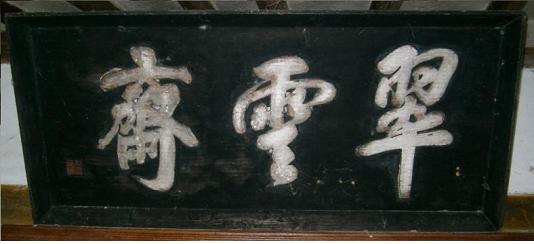 翠雲齋